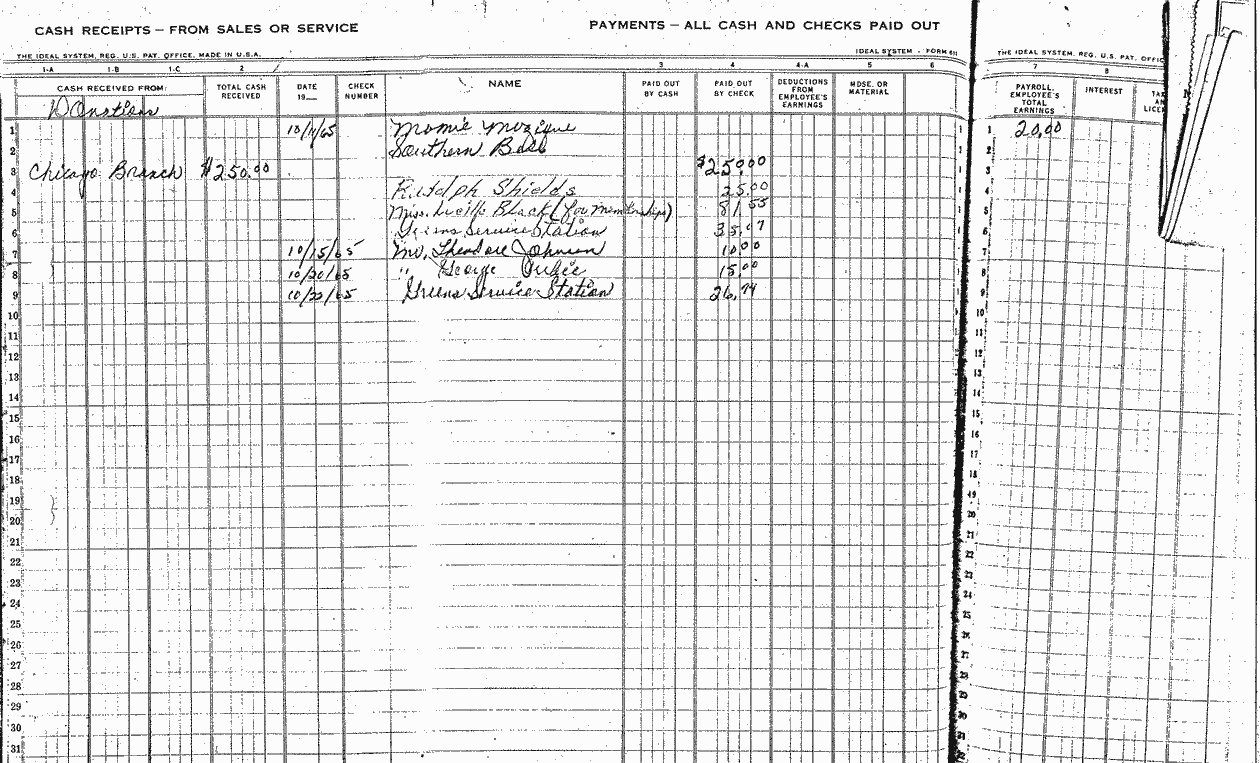 CASH RECEIPTS — FROM SALES OR SERVICE
PAYMENTS — ALL CASH AND CHECKS PAID OUT
THE IDEAL SYSTEM, REG. U.S. PAT. OFFICE. MADE IN U.S.A.
IDEAL SYSTEM - FORM 611
THE IDEAL SYSTEM, REG. U.S. PAT. OFFIC
1-A 1-B 1-C 2 3 4 4-A 5 6 7 8
CASH RECEIVED FROM: TOTAL CASH RECEIVED DATE 19__ CHECK NUMBER NAME PAID OUT BY CASH PAID OUT BY CHECK DEDUCTIONS FROM EMPLOYEE'S EARNINGS MDSE. OR MATERIAL PAYROLL, EMPLOYEE'S TOTAL EARNINGS INTEREST
1 10/11/65 1 1 20,00
2 Southern Bell 2 2
3 Chicago Branch $250.00 $250.00 3 3
4 Rudolph Shields 25.00 4 4
5 Miss. Lucille Black (for memberships) 81.55 5 5
6 Service Station 35.07 6 6
7 10/15/65 Mr. Theodore Johnson 10.00 7 7
8 10/20/65 " George 15.00 8 8
9 10/22/65 Greens Service Station 26.94 9 9
10 10 10
11 11 11
12 12 12
13 13 13
14 14 14
15 15 15
16 16 16
17 17 17
18 18 18
19 19 19
20 20 20
21 21 21
22 22 22
23 23 23
24 24 24
25 25 25
26 26 26
27 27 27
28 28 28
29 29 29
30 30 30
31 31 31